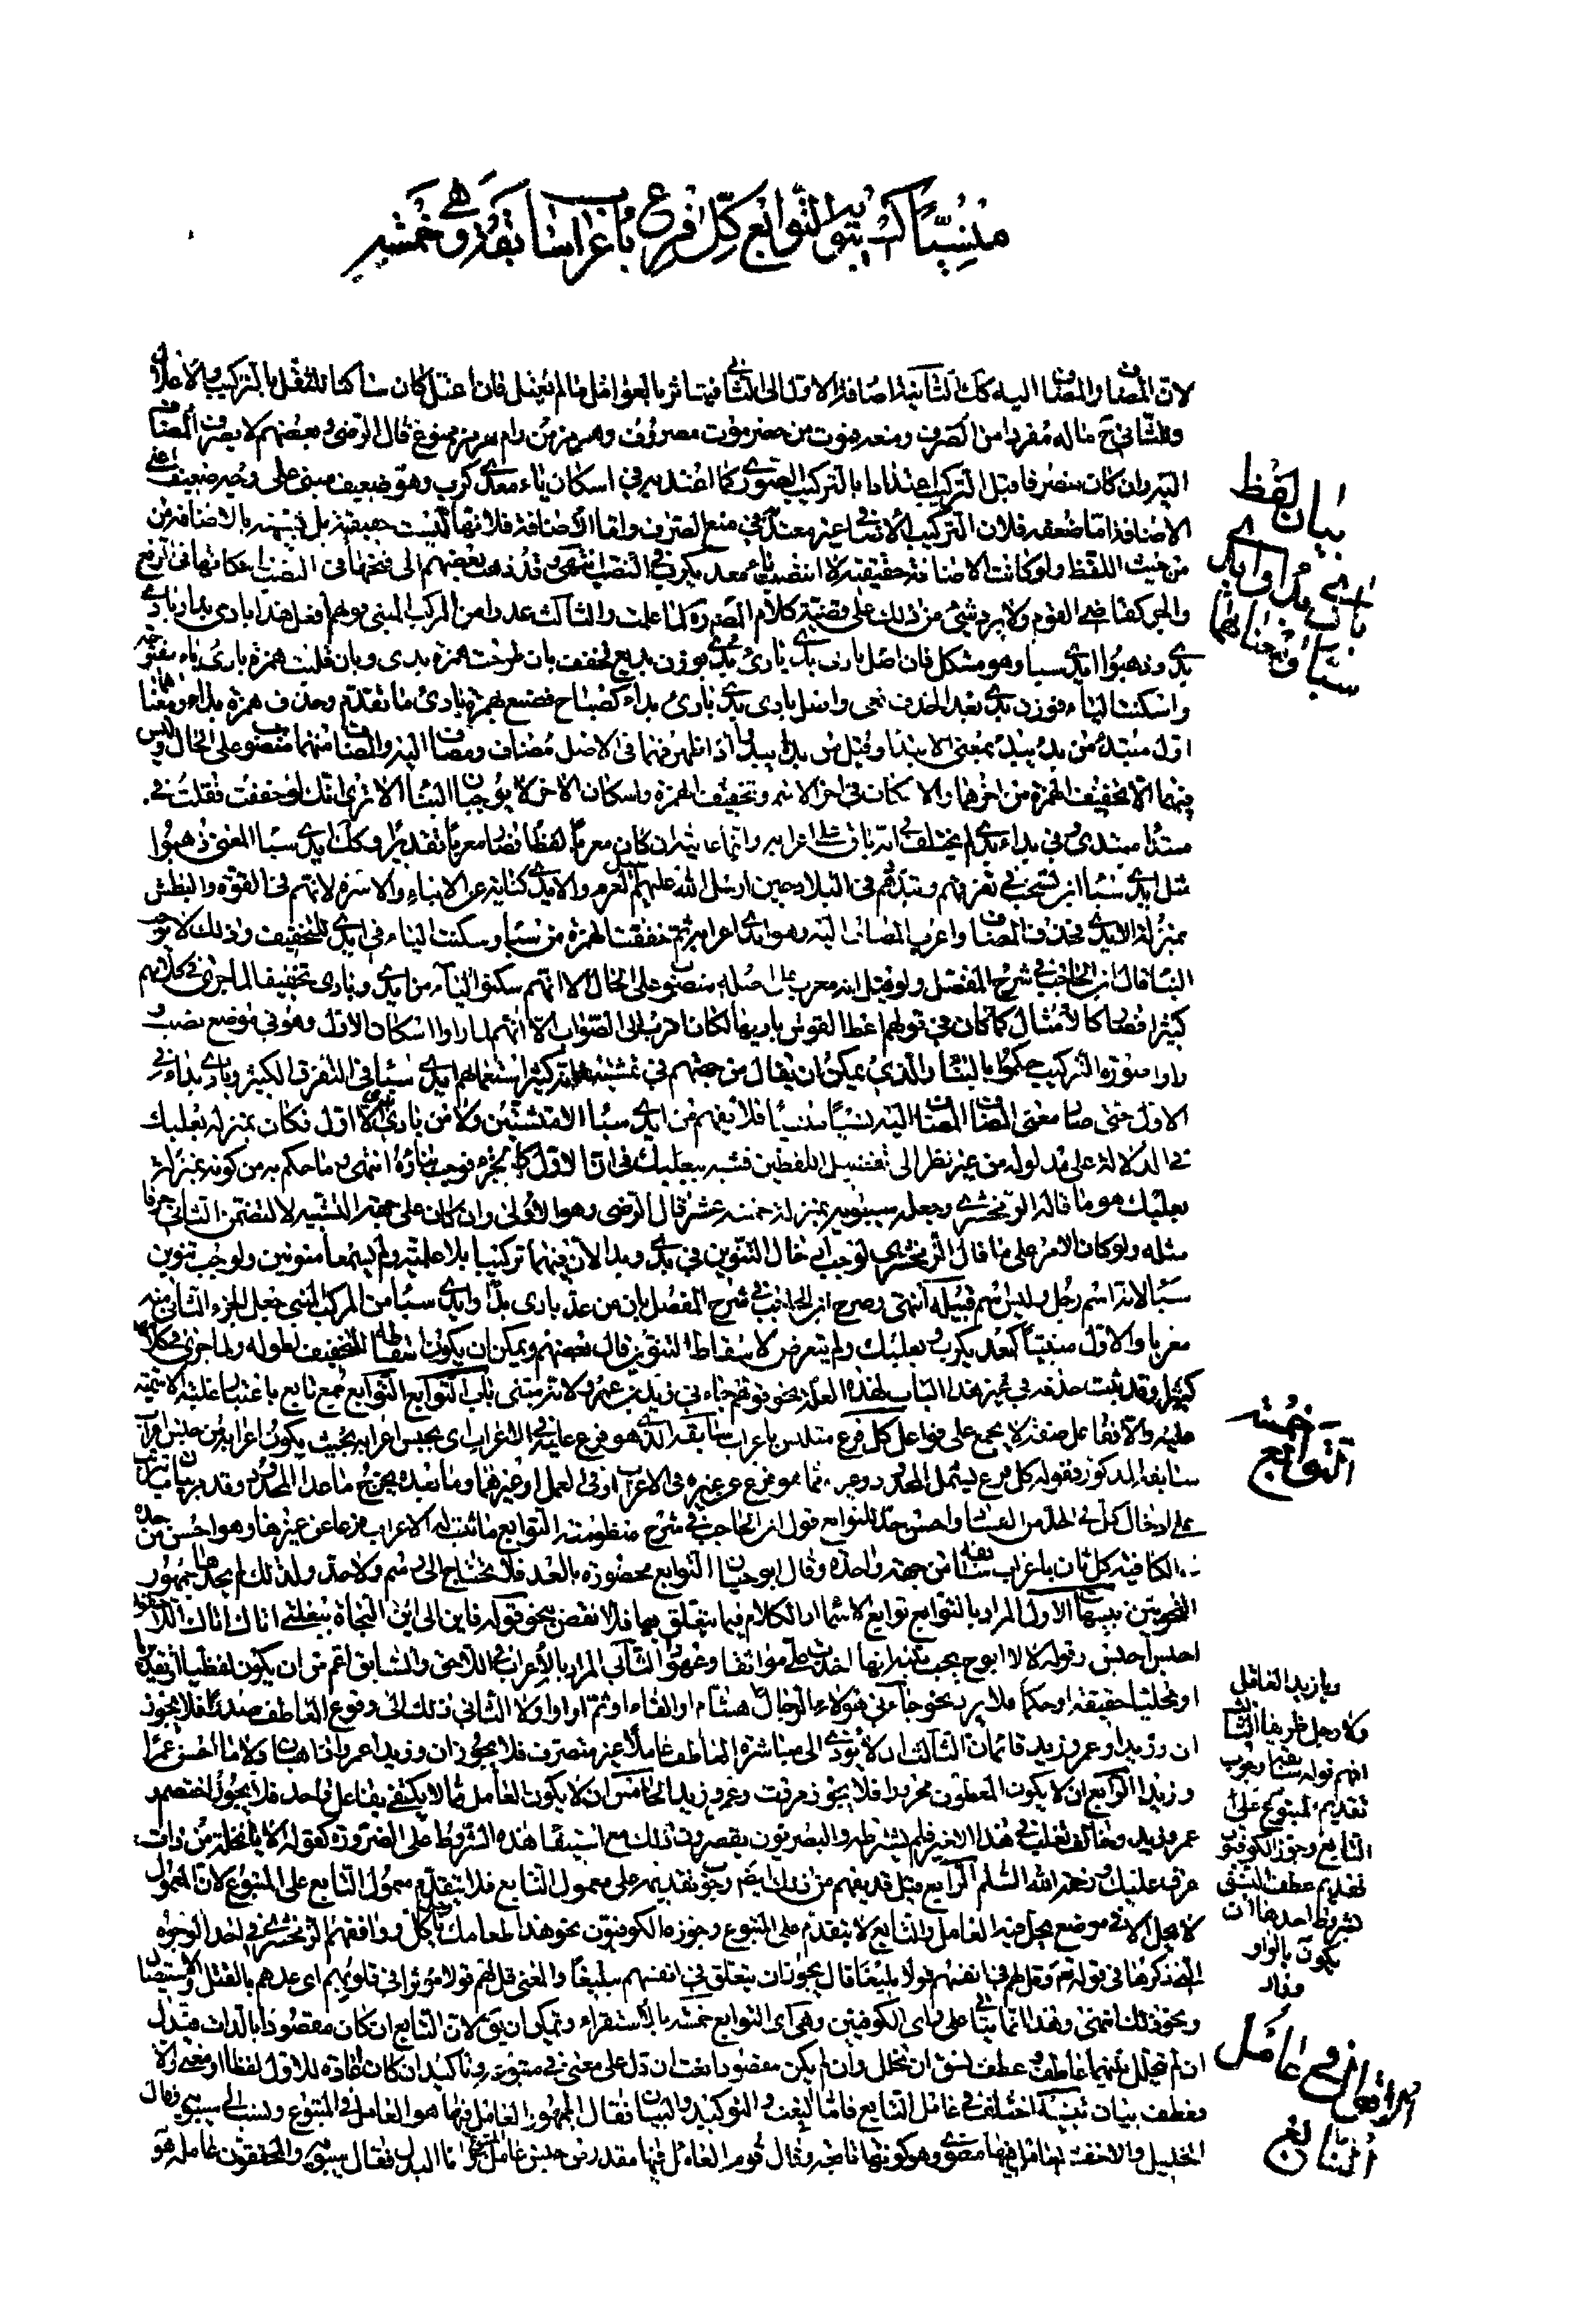 مبنيا كسيبويه التوابع كل فرع باعراب سابقه وهي خمسة
لان المضاف والمضاف اليه كذلك اضافة الاول الى الثاني فيتاثر بالعوامل ما لم يعتل فان اعتل كان ساكنا للثقل بالتركيب والاعلال
وللثاني ح ماله مفردا من الصرف ومنعه فموت من حضرموت مصروف وهرمز من رام هرمز ممنوع قال الرضي وبعضهم لا يصرف المضاف
اليه وان كان منصرفا قبل التركيب اعتدادا بالتركيب الصوري كما اعتد به في اسكان ياء معدي كرب وهو ضعيف مبني على وجه ضعيف اعني
الاضافة اما ضعفه فلان التركيب الاضافي غير معتد في منع الصرف واما الاضافة فلانها ليست حقيقية بل شبهت بالاضافة من
من حيث اللفظ ولو كانت الاضافة حقيقية لانتصب ياء معد يكرب في النصب انتهى وقد ذهب بعضهم الى فتحها في النصب اسكانها في الرفع
والجر كقاضي القوم ولا يرد شيء من ذلك على قضية كلام المص كما علمت والثالث عدوا من المركب المبني قولهم افعل هذا بادي بدا وبادي
بدي وذهبوا ايدي سبا وهو مشكل فان اصل بادي بدي بادئ بدئ بوزن بديع فخفف بان طرحت همزة بدي وبان قلبت همزة بادئ ياء
واسكنت الياء فوزن بدي بعد الحذف فعي واصل بادي بدي بادئ بداء كصباح فصنع بهمزة بادئ ما تقدم وحذف همزة بداء ومعناهما
اول مبتدء من بدء يبدء بمعنى الابتداء وقيل من بدا يبدو اذا ظهر فهما في الاصل مضاف ومضاف اليه والمضاف منهما منصوب على الحال وليس
فيهما الا تخفيف الهمزة من اخرهما والاسكان في اخر الاسم وتخفيف الهمزة واسكان الاخر لا يوجبان البناء الا ترى انك لو خففت فقلت في
مبتدئ مبتدي وفي بداء بدي لم يختلف في انه باق على اعرابه وانما غايته ان كان معربا لفظا فصار معربا تقديرا وكذلك ايدي سبا المعنى ذهبوا
مثل ايدي سبا ابن يشجب في تفرقهم وتبددهم في البلاد حين ارسل الله عليهم سيل العرم والايدي كناية عن الابناء والاسرة لانهم في القوة والبطش
بمنزلة الايدي فحذف المضاف واعرب المضاف اليه وهو ايدي اعرابه ثم خففت الهمزة من سبا وسكنت الياء في ايدي للتخفيف وذلك لا يوجب
البناء قال ابن الحاجب في شرح المفصل ولو قيل انه معرب على اصله منصوب على الحال الا انهم سكنوا الياء من ايدي وبادي تخفيفا لما جرى في كلامهم
كثيرا فصار كالامثال كما كان في قولهم اعط القوس باريها لكان اقرب الى الصواب الا انهم لما راوا اسكان الاول وهو في موضع نصب
راوا صورة التركيب حكموا بالبناء والذي يمكن ان يقال من جهتهم في تمشيته انه كثر استعمالهم ايدي سبا في التفرق الكثير وبادي بداء في
الاول حتى صار معنى المضاف والمضاف اليه نسيا منسيا فلا يفهم من ايدي سبا الا متشتتين ولا من بادي بدي الا اول فكان بمنزلة بعلبك
في الدلالة على مدلوله من غير نظر الى تفصيل اللفظين فشبه ببعلبك في ان الاول كجزء فوجب بناؤه انتهى وما حكم به من كونه بمنزلة
بعلبك هو ما قاله الزمخشري وجعله سيبويه بمنزلة خمسة عشر قال الرضي وهو الاولى وان كان على جهة التشبيه لا لتضمن الثاني حرفا
مثله ولو كان الامر على ما قال الزمخشري لوجب ابدال التنوين في بدي وبدا لان فيهما تركيبا بلا علمية ولم يسمعا منونين ولوجب تنوين
سبا لانه اسم رجل وليس اسم قبيلة انتهى وصرح ابن الحاجب في شرح المفصل بان من عد بادي بدا وايدي سبا من المركب المبني جعل الجزء الثاني منه
معربا والاول مبنيا كمعد يكرب وبعلبك ولم يتعرض لاسقاط التنوين قال بعضهم ويمكن ان يكون اسقاطه للتخفيف لطوله ولما جرى في كلامهم
كثيرا وقد يثبت حذفه في غير هذا الباب لهذه العلة نحو قولهم جاءني زيد بن عمرو لانه مبني باب التوابع التوابع جمع تابع باعتبار غلبة الاسمية
عليه والا فقاعل صفة لا يجمع على فواعل كل فرع متلبس باعراب سابقه الذي هو فرع عليه في الاعراب اي بجنس اعرابه بحيث يكون اعرابه من جنس اعراب
على ادخال كل في الحد من الفساد واحسن حد التوابع قول ابن الحاجب في شرح منظومته التوابع ما ثبت له الاعراب فرعا عن غيرها وهو احسن من حده
في الكافية كل ثان باعراب سابقه من جهة واحدة وقال ابو حيان التوابع محصورة بالعد فلا يحتاج الى رسم ولا حد ولذلك لم يحدها جمهور
النحويين تنبيهات الاول المراد بالتوابع توابع الاسماء اذ الكلام فيما يتعلق بها فلا نقض بنحو قوله فاين الى اين النجاة ببغلتي اتاك اتاك اللاحقون
احبس احبس وقوله لا لا ابوح بحب بثنة انها اخذت علي مواثقا وعهودا الثاني المراد بالاعراب في اللاحق والسابق اعم من ان يكون لفظيا او تقديريا
ان وزيدا وعمرو زيد قائمان الثالث ان لا يؤدي الى مباشرة العاطف عاملا غير متصرف فلا يجوز ان وزيدا عمروا ذاهبان ولا ما احسن عمرا
وزيدا الرابع ان لا يكون المعطوف مجرورا فلا يجوز مررت وعمرو زيد الخامس ان لا يكون العامل مما لا يكتفي بفاعل واحد فلا يجوز اختصم و
عمرو زيد وخالف ثعلب في هذا الاخير فلم يشترطه والبصريون يقصرون ذلك مع استيفاء هذه الشروط على الضرورة كقوله الا يا نخلة من ذات
عرق عليك ورحمة الله السلام الرابع قيل قد يفهم من ذلك ايضا وجوب تقديمه على معمول التابع فلا يتقدم معمول التابع على المتبوع لان المعمول
لا يحل الا في موضع يحل فيه العامل والتابع لا يتقدم على المتبوع وجوزه الكوفيون نحو هذا طعامك رجل ياكل ووافقهم الزمخشري في احد الوجوه
التي ذكرها في قوله تعالى وقل لهم في انفسهم قولا بليغا قال يجوز ان يتعلق في انفسهم ببليغا والمعنى قل لهم قولا مؤثرا في قلوبهم اي عدهم بالقتل والاستيصال
ونحو ذلك انتهى وهذا انما يتاتى على راي الكوفيين وهي اي التوابع خمسة بالاستقراء ويمكن ان يق لان التابع ان كان مقصودا بالذات فبدل
ان لم يتخلل بينهما عاطف وعطف نسق ان تخلل وان لم يكن مقصودا نعت ان دل على معنى في متبوعه وتاكيد ان كان اعادة للاول لفظا او معنى والا
فعطف بيان تنبيه اختلف في عامل التابع فاما النعت والتوكيد والبيان فقال الجمهور العامل فيها هو العامل في المتبوع ونسب الى سيبويه وقال
الخليل والاخفش العامل فيها معنوي وهو كونها تابعة وقال قوم العامل فيها مقدر من جنس عامل المتبوع واما البدل فقال سيبويه والمحققون عامله هو
بيان لفظ
بادي بدا وايدي
سبا ومعناهما
التوابع خمسة
ويا زيد العاقل
ولا رجل ظريفا الثالث
افهم قوله سابقه وجوب
تقديم المتبوع على
التابع وجوز الكوفيون
تقديم عطف النسق
بشروط احدها ان
يكون بالواو
التابع